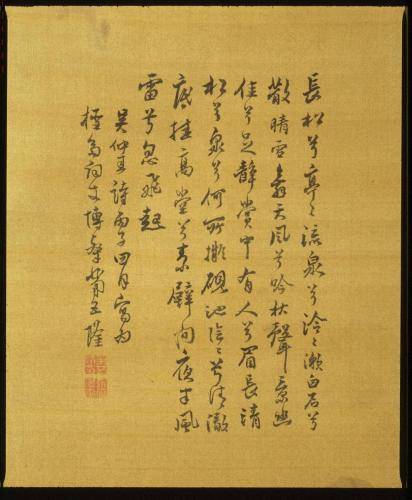 長松兮亭〻流泉兮泠〻漱白石兮
散晴雪舞天風兮吟秋聲景幽
佳兮足靜賞中有人兮眉長清
松兮泉兮何所擬硯池陰〻兮清澈
底挂高堂兮素壁間夜半風
雷兮忽飛起
吳仲圭詩丙子四月寫為
詞丈博粲